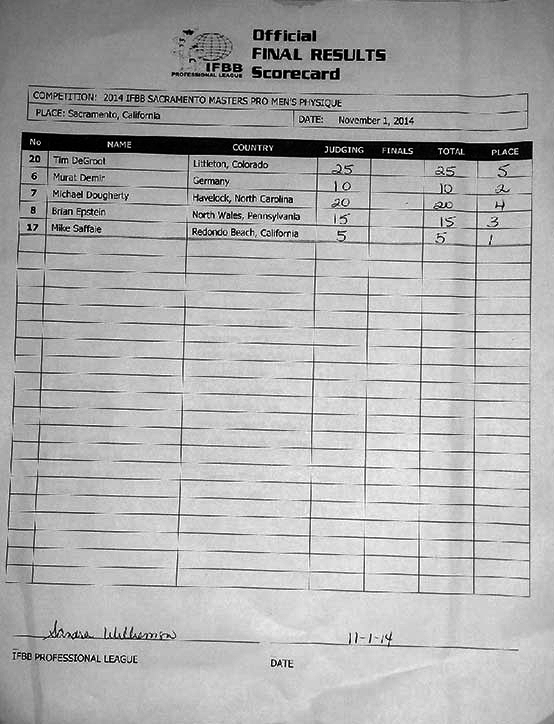 Official
FINAL RESULTS
IFBB Scorecard
PROFESSIONAL LEAGUE
COMPETITION: 2014 IFBB SACRAMENTO MASTERS PRO MEN'S PHYSIQUE
PLACE: Sacramento, California DATE: November 1, 2014
No NAME COUNTRY JUDGING FINALS TOTAL PLACE
20 Tim DeGroot Littleton, Colorado 25 25 5
6 Murat Demir Germany 10 10 2
7 Michael Dougherty Havelock, North Carolina 20 20 4
8 Brian Epstein North Wales, Pennsylvania 15 15 3
17 Mike Saffaie Redondo Beach, California 5 5 1
11-1-14
IFBB PROFESSIONAL LEAGUE DATE